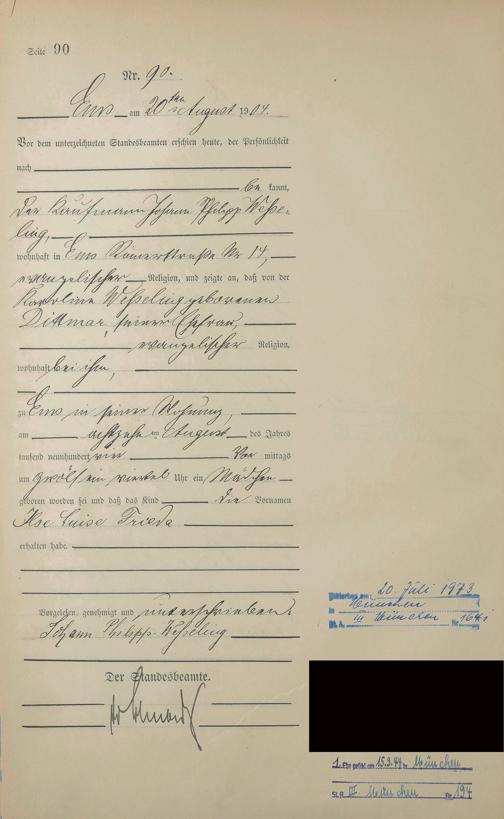 Seite 90
Nr. 90.
Ems am 20ten August 1904.
Vor dem unterzeichneten Standesbeamten erschien heute, der Persönlichkeit
nach
be kannt,
Der Kaufmann Johann Philipp Wesse-
ling,
wohnhaft in Ems Römerstraße Nr 14,
evangelischer Religion, und zeigte an, daß von der
Karoline Wesseling geborenen
Dittmar, seiner Ehefrau,
evangelischer Religion,
wohnhaft bei ihm,
zu Ems in seiner Wohnung,
am achtzehnten August des Jahres
tausend neunhundert vier Vor mittags
um zwölf ein viertel Uhr ein Mädchen
geboren worden sei und daß das Kind die Vornamen
Ilse Luise Frieda
erhalten habe.
Vorgelesen, genehmigt und unterschrieben.
Johann Philipp Wesseling
Der Standesbeamte.
20. Juli 1973
in München
St. A. III München Nr. 1641
1. Ehe geschl. am 15.3.44 in München
St. A. III München Nr. 194